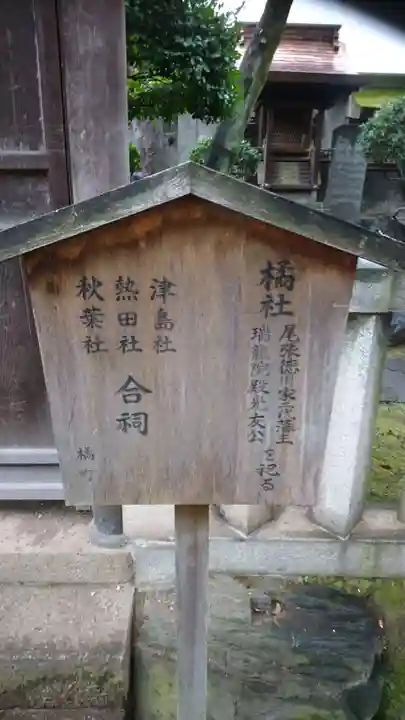 橘社
尾張徳川家二代藩主
瑞龍院殿光友公を祀る
津島社
熱田社
秋葉社
合祠
橘町